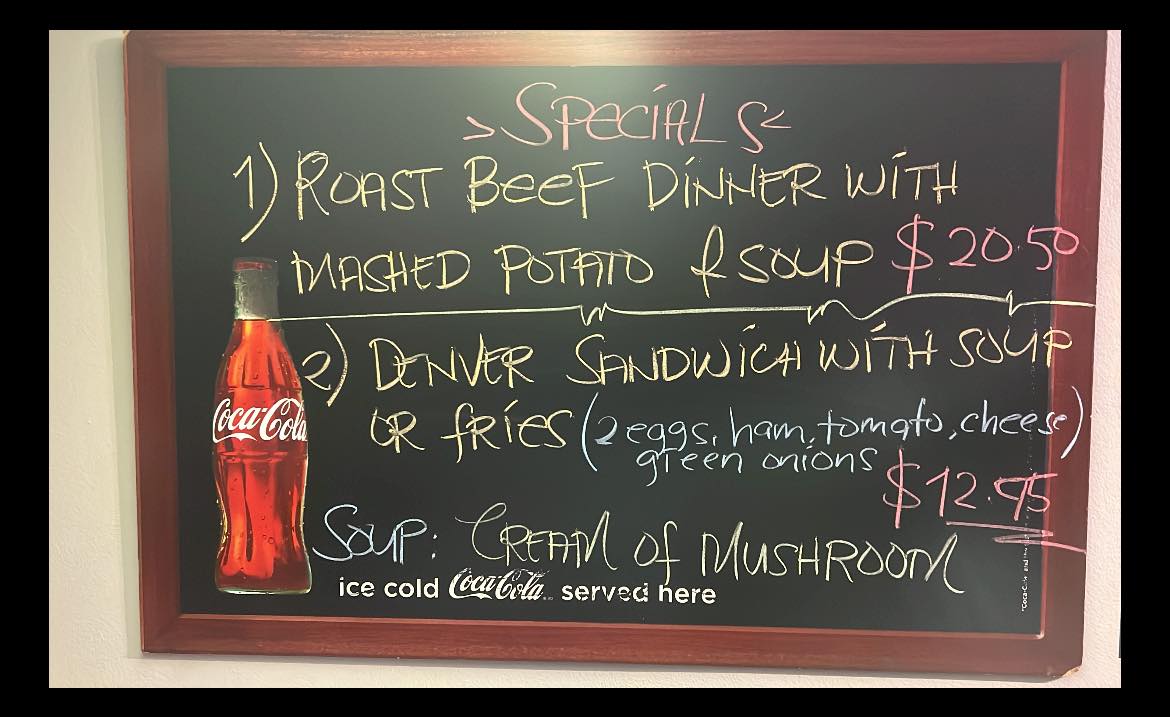 > SPECIALS <
1) ROAST BEEF DINNER WITH
MASHED POTATO & SOUP $20.50
2) DENVER SANDWICH WITH SOUP
OR fRiES (2 eggs, ham, tomato, cheese)
green onions
$12.95
Coca-Cola
SOUP: CREAM Of MUSHROOM
ice cold Coca-Cola served here